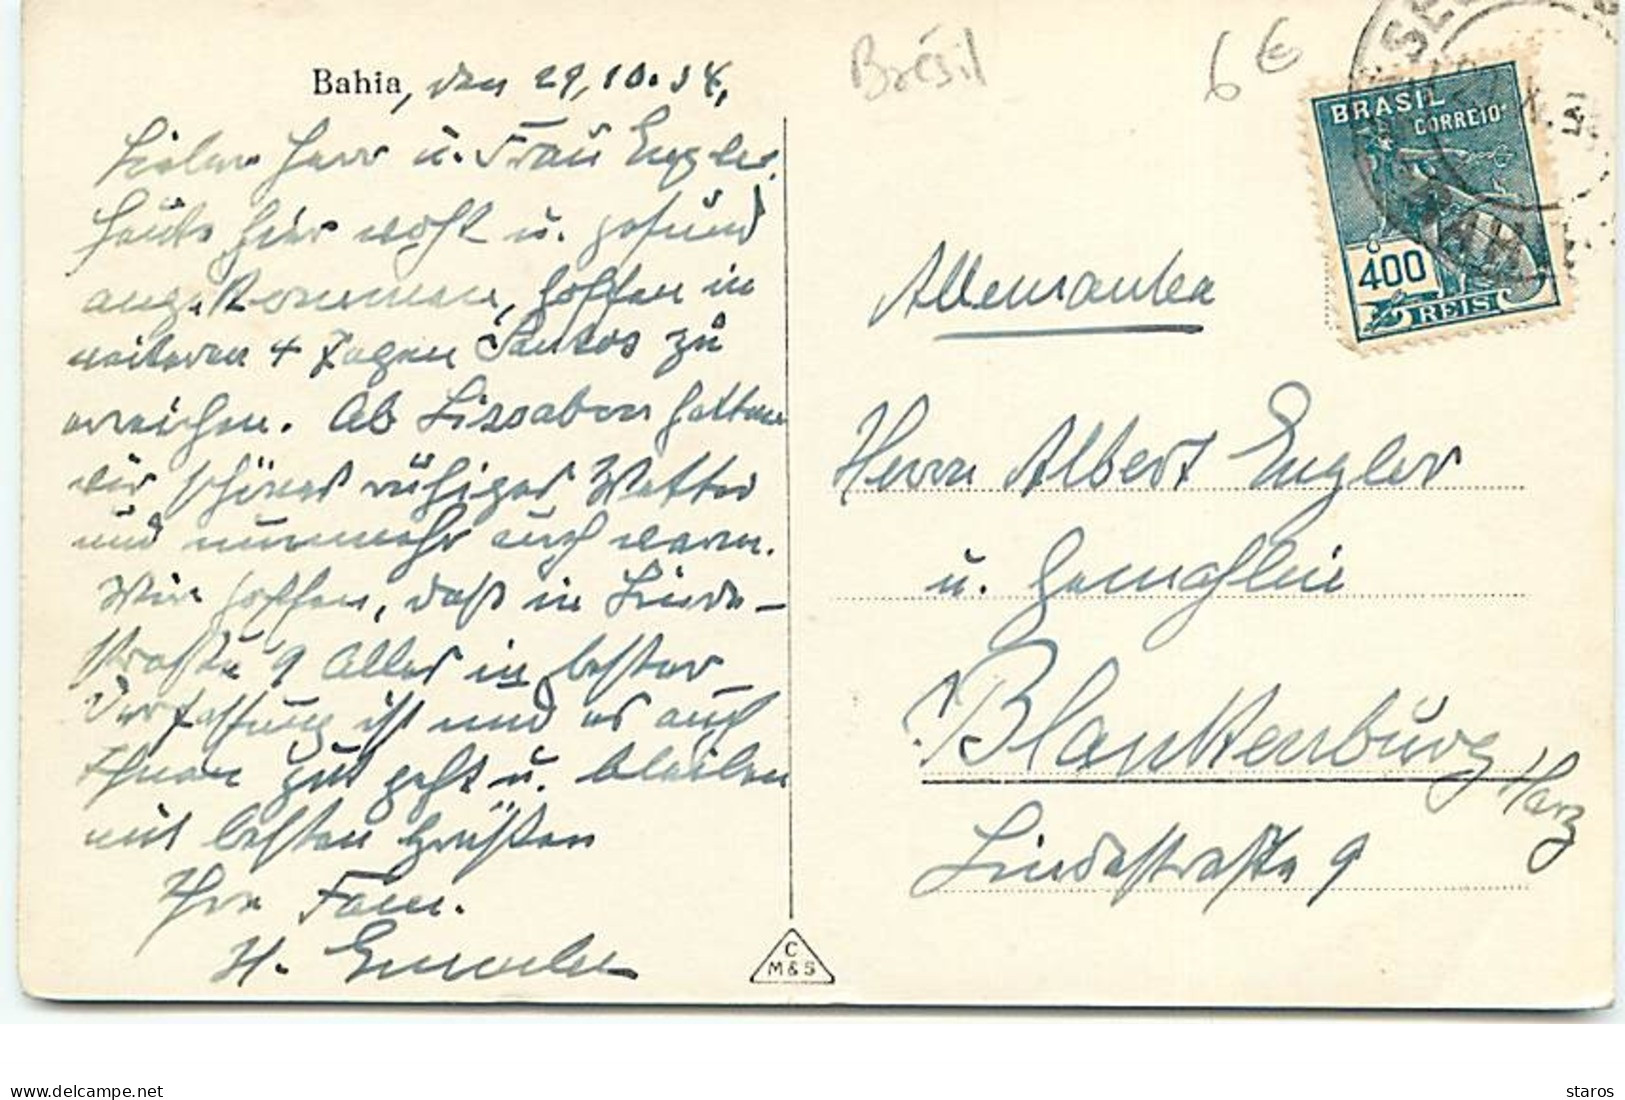 Bahia, den 29.10.34.
Lieber Herr u. Frau Engler.
Heute hier wohl u. gesund
angekommen, hoffen in
weiteren 4 Tagen Santos zu
erreichen. Ab Lissabon hatten
wir schönes ruhiges Wetter
und nunmehr auch warm.
Wir hoffen, daß in Linde-
straße 9 Alles in bester
Verfassung ist und es auch
Ihnen gut geht u. bleiben
mit besten Grüßen
Ihre Fam.
H.
C
M&S
Brésil
6€
BRASIL
CORREIO
400
REIS
Allemanha
Herrn Albert Engler
u. Gemahlin
Blankenburg Harz
Lindestraße 9
delcampe.net
staros